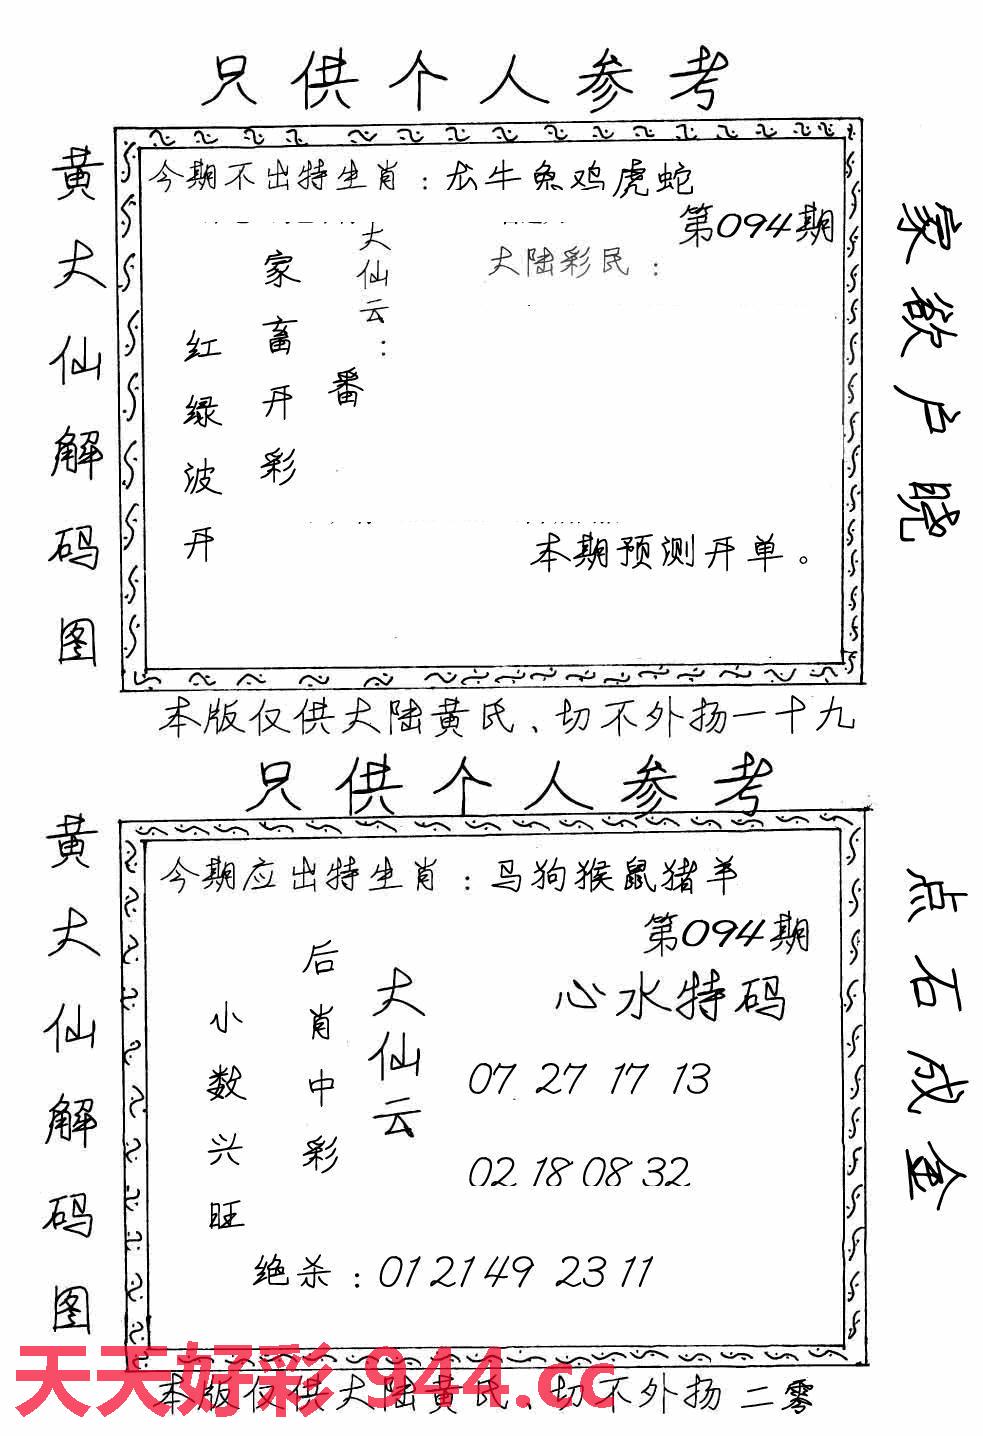 只供个人参考
黄大仙解码图
今期不出特生肖：龙牛兔鸡虎蛇
第094期
大陆彩民：
大仙云：
番
家畜开彩
红绿波开
本期预测开单。
家欲户晓
本版仅供大陆黄氏、切不外扬一十九
只供个人参考
黄大仙解码图
今期应出特生肖：马狗猴鼠猪羊
第094期
心水特码
07 27 17 13
02 18 08 32
大仙云
后肖中彩
小数兴旺
绝杀：01 21 49 23 11
点石成金
天天好彩 944.cc
本版仅供大陆黄氏、切不外扬二零